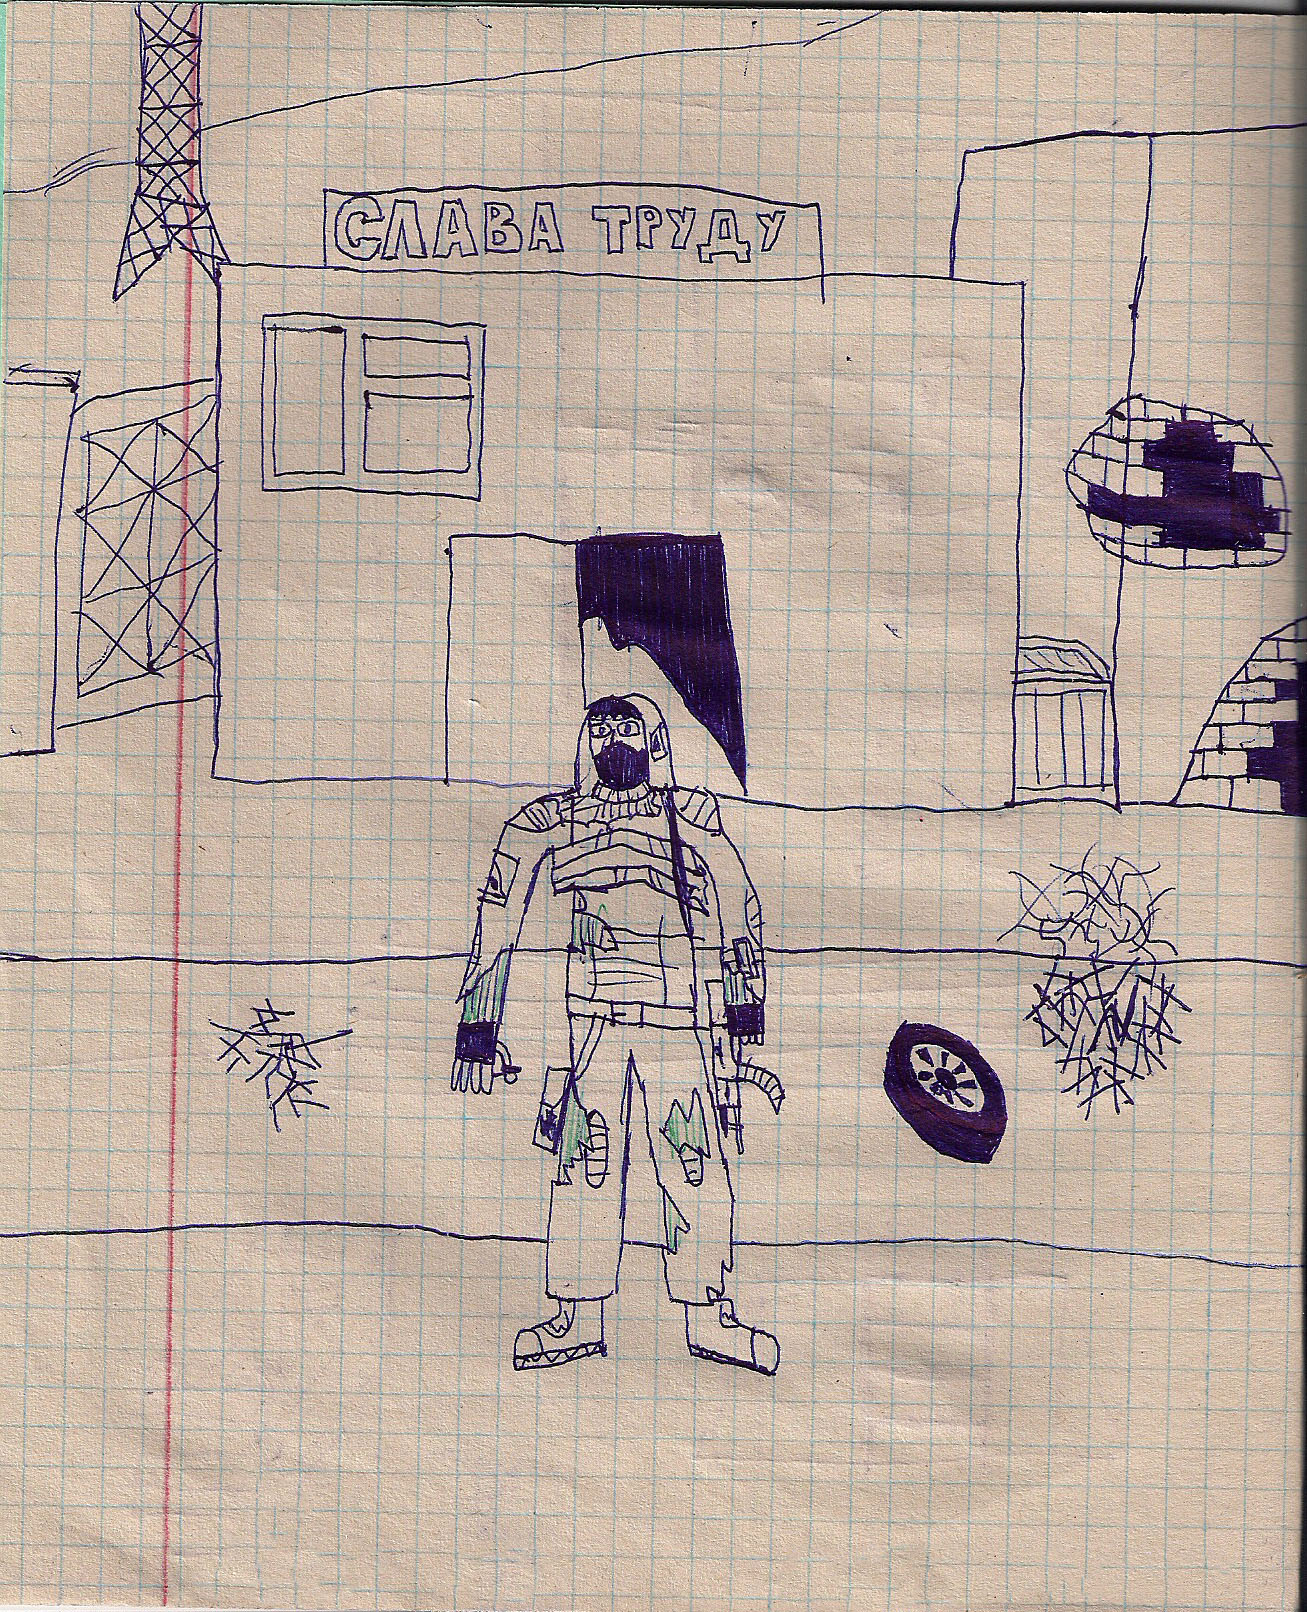 СЛАВА ТРУДУ